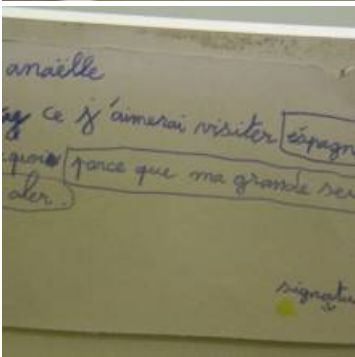 anaëlle
ce j'aimerai visiter éspagn
quoi parce que ma grande ser
aler.
signatu